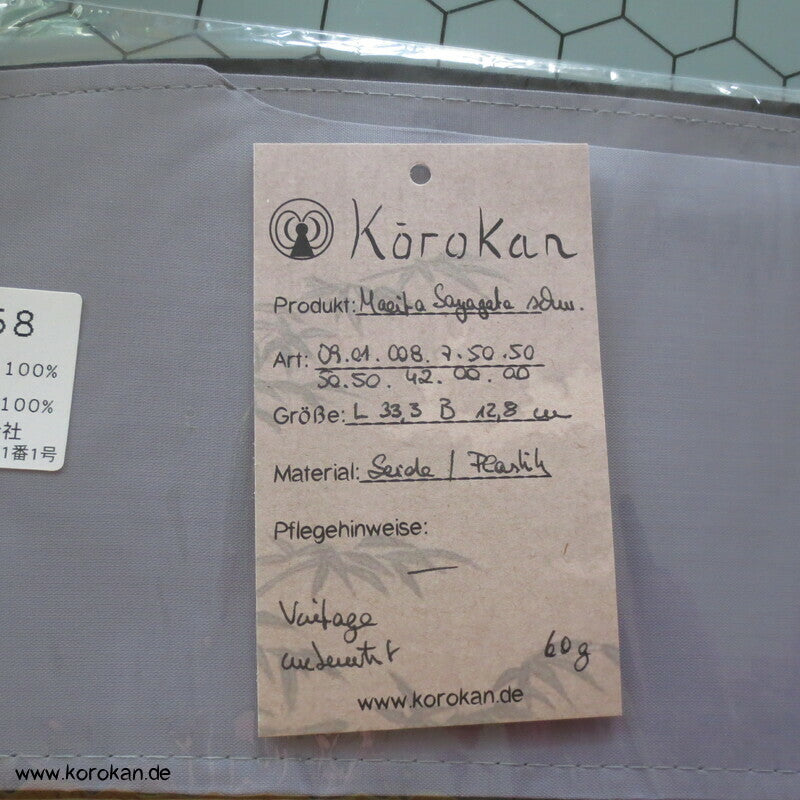 58
100%
100%
社
1番1号
Kōrokan
Produkt: Maeita Sayagata schw.
Art: 09.01.008.7.50.50
50.50.42.00.00
Größe: L 33,3 B 12,8 cm
Material: Seide / Plastik
Pflegehinweise:
—
Vintage
unbenutzt
60g
www.korokan.de
www.korokan.de